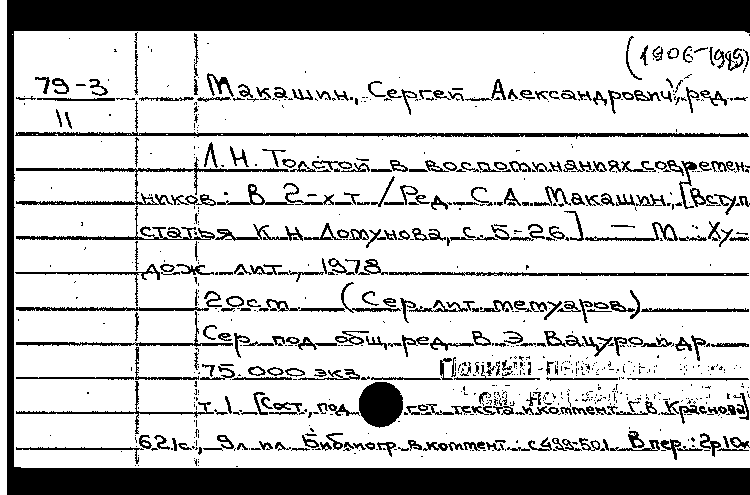 (1906-1995)
79-3
11
Макашин, Сергей Александрович, ред
Л.Н. Толстой в воспоминаниях современ-
ников: В 2-х т / Ред. С А Макашин; [Вступ
статья К Н Ломунова, с. 5-26] — М : Ху-
дож лит, 1978
20см (Сер. лит мемуаров)
Сер под общ ред В Э Вацуро и др
75.000 экз
Полный
см.
т. 1 [Сост, под гот. текста и коммент Г В Краснова]
621с, 9л ил Библиогр в коммент: с 499-501 В пер: 2р10к